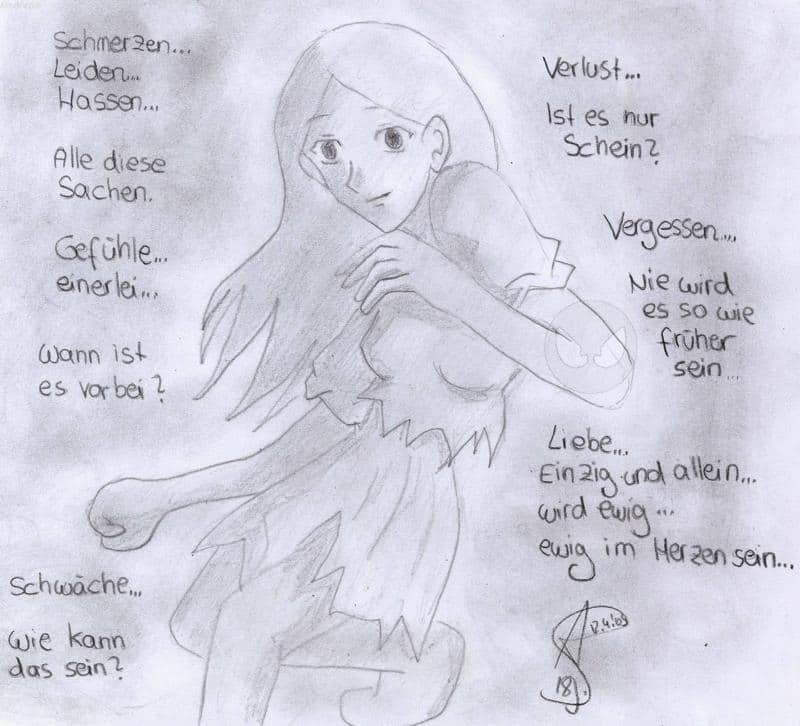 Schmerzen...
Leiden...
Hassen...
Alle diese
Sachen.
Gefühle...
einerlei...
Wann ist
es vorbei?
Schwäche...
Wie kann
das sein?
Verlust...
Ist es nur
Schein?
Vergessen...
Nie wird
es so wie
früher
sein...
Liebe...
Einzig und allein...
wird ewig...
ewig im Herzen sein...
12.4.09
18J.